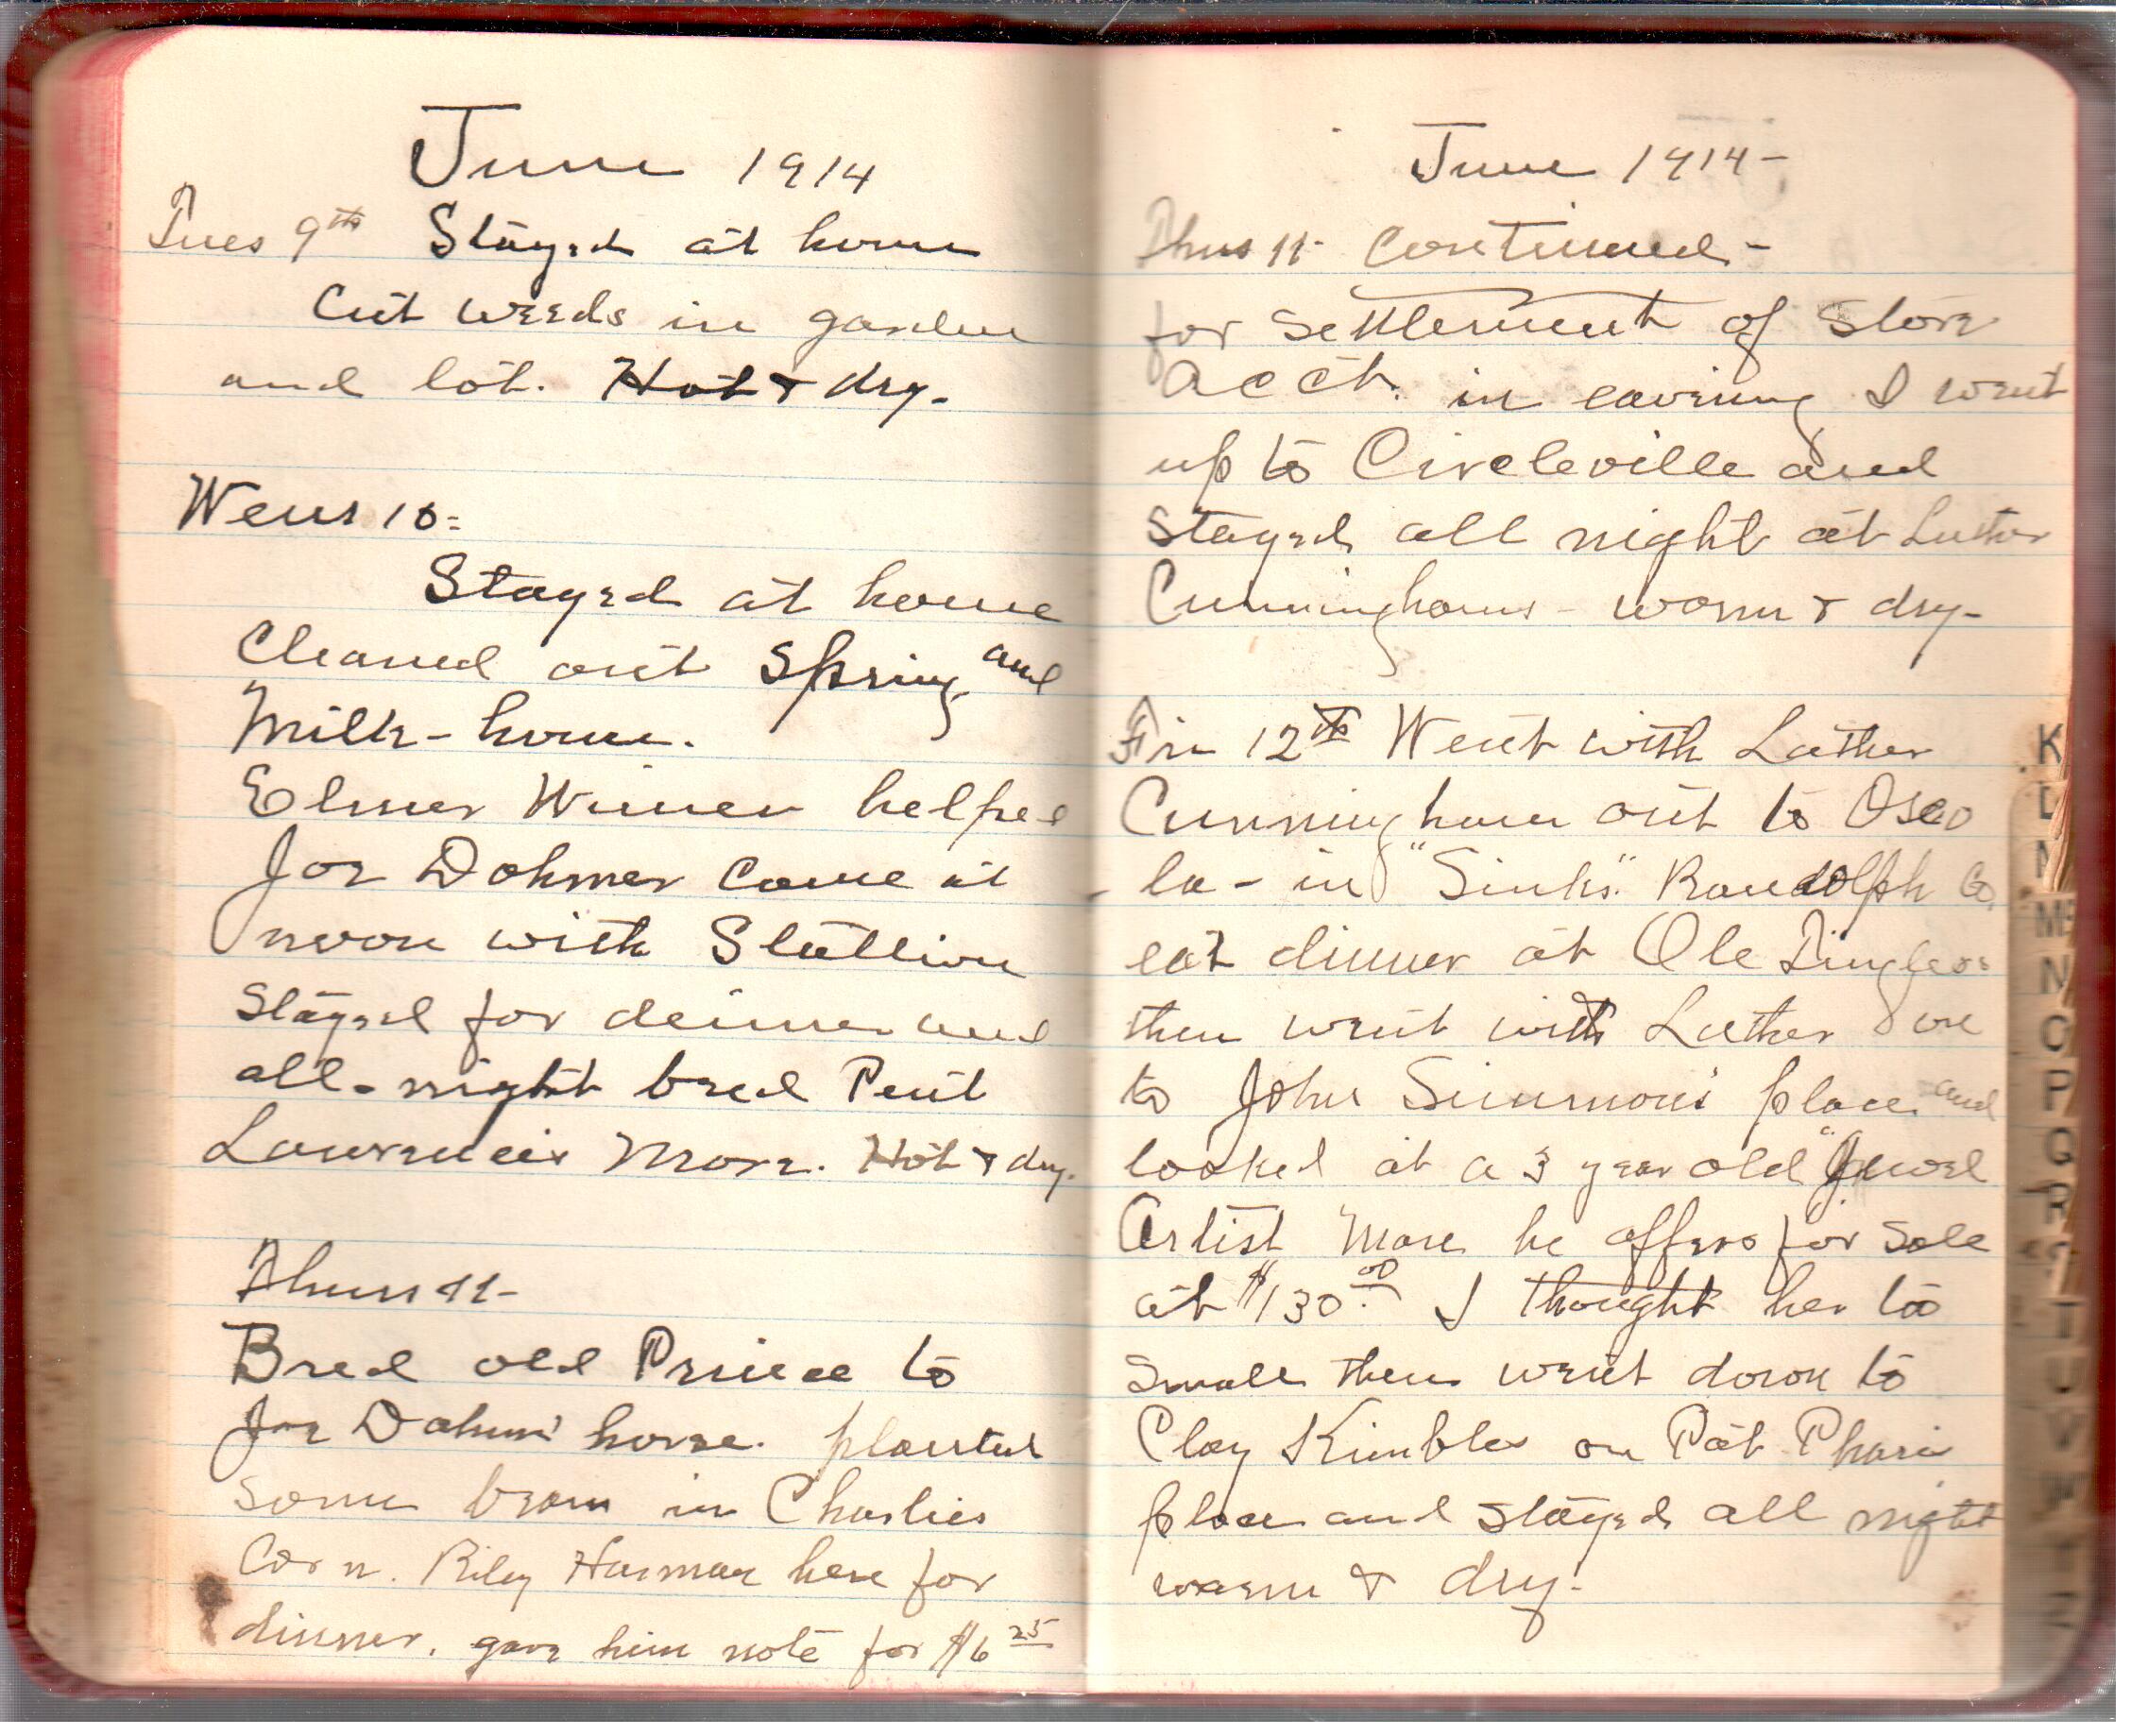 June 1914
Tues 9th Stayed at home
Cut weeds in garden
and lot. Hot & dry.
Wens 10=
Stayed at home
Cleaned out Spring and
Milk-house.
Elmer Wimer helped
Joe Dohmer came at
noon with Stallion
Stayed for dinner and
all-night bred
Mare. Hot & dry.
Thurs 11-
Bred old Prince to
Joe horse. planted
some beans in Charlies
Corn. Riley Harman here for
dinner. gave him note for $6 25
June 1914-
Thus 11- Continued-
for settlement of store
acct. in eavening I went
up to Circleville and
stayed all night at Luther
Cunninghams - warm & dry-
Fri 12th Went with Luther
Cunningham out to Oseo
la- in "Sinks". Randolph Co.
eat dinner at Ole
then went with Luther on
to John Simmons place and
looked at a 3 year old "Jewel
Artist Mare he offers for sale
at $130.00 I thought her too
small then went down to
Clay Kimble on Pat Phari
place and stayed all night
warm & dry.
K
L
M
Mc
N
O
P
Q
R
S
T
U
V
W
Y
Z